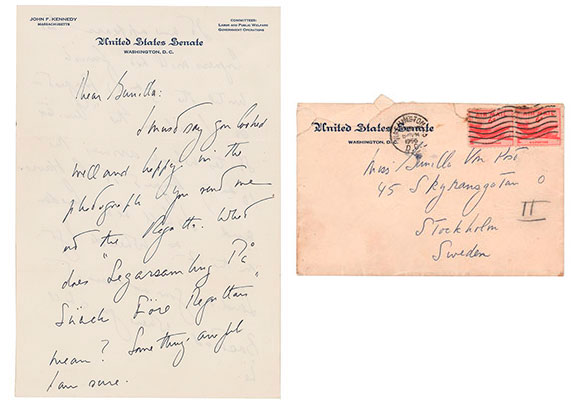 JOHN F. KENNEDY
MASSACHUSETTS
COMMITTEES:
LABOR AND PUBLIC WELFARE
GOVERNMENT OPERATIONS
United States Senate
WASHINGTON, D. C.
Dear Gunilla:
I must say you looked
well and happy in the
photograph you send me
at the Regatta. What
does "Segarsamling På
Före Regattan"
mean? Something awful
I am sure.
United States Senate
WASHINGTON, D.C.
Miss Gunilla Von Post
45 O
II
Stockholm
Sweden